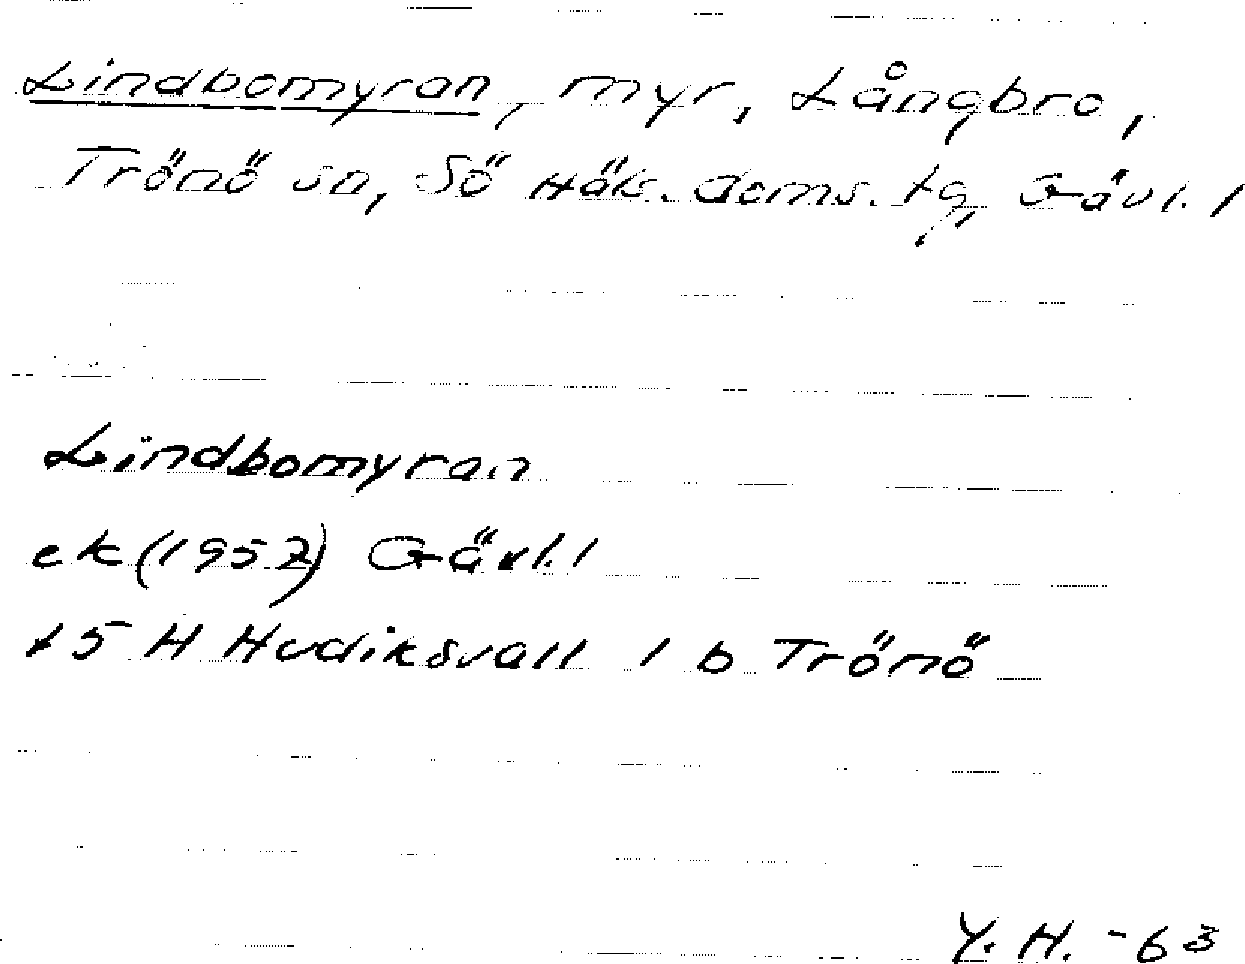 Lindbomyran, myr, Långbro,
Trönö sn, Sö Häls. doms. tg, Gävl. l
Lindbomyran
ek (1952) Gävl. l
15 H Hudiksvall 1 b Trönö
Y. H. -63